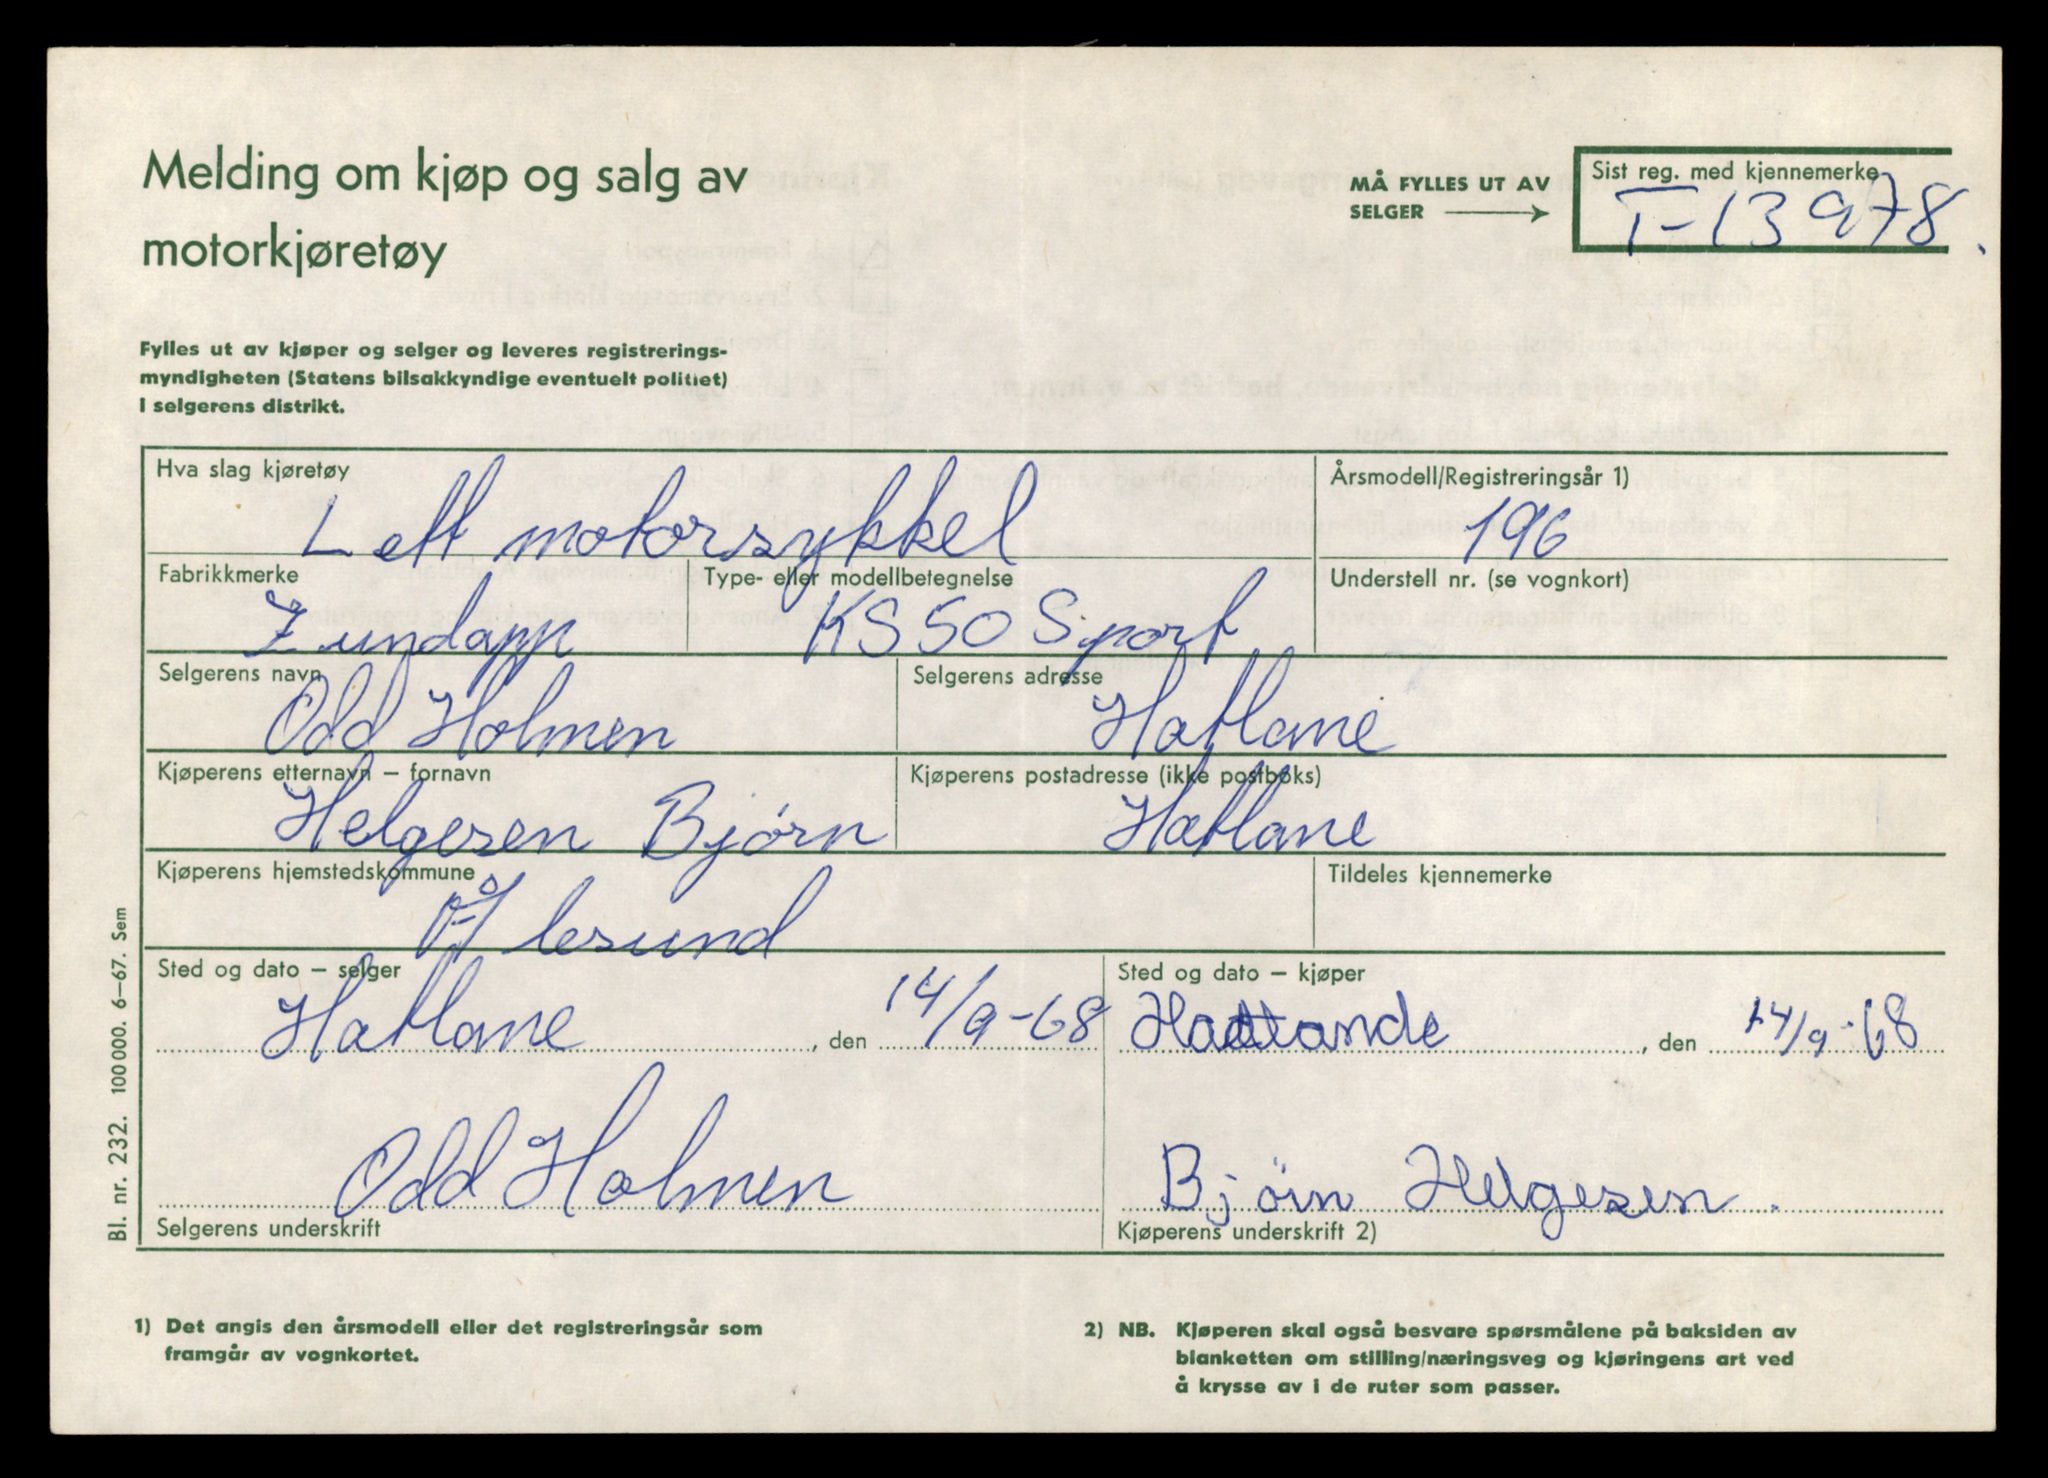 Melding om kjøp og salg av
motorkjøretøy
MÅ FYLLES UT AV
SELGER
Sist reg. med kjennemerke
T-13978.
Fylles ut av kjøper og selger og leveres registrerings-
myndigheten (Statens bilsakkyndige eventuelt politiet)
i selgerens distrikt.
Hva slag kjøretøy
Lett motorsykkel
Årsmodell/Registreringsår 1)
196
Fabrikkmerke
Zundapp
Type- eller modellbetegnelse
KS 50 Sport
Understell nr. (se vognkort)
Selgerens navn
Odd Holmen
Selgerens adresse
Hatlane
Kjøperens etternavn – fornavn
Helgesen Bjørn
Kjøperens postadresse (ikke postboks)
Hatlane
Kjøperens hjemstedskommune
Ålesund
Tildeles kjennemerke
Sted og dato – selger
Hatlane, den 14/9-68
Sted og dato – kjøper
, den 14/9-68
Odd Holmen
Selgerens underskrift
Bjørn Helgesen.
Kjøperens underskrift 2)
Bl. nr. 232. 100000. 6–67. Sem
1) Det angis den årsmodell eller det registreringsår som
framgår av vognkortet.
2) NB. Kjøperen skal også besvare spørsmålene på baksiden av
blanketten om stilling/næringsveg og kjøringens art ved
å krysse av i de ruter som passer.